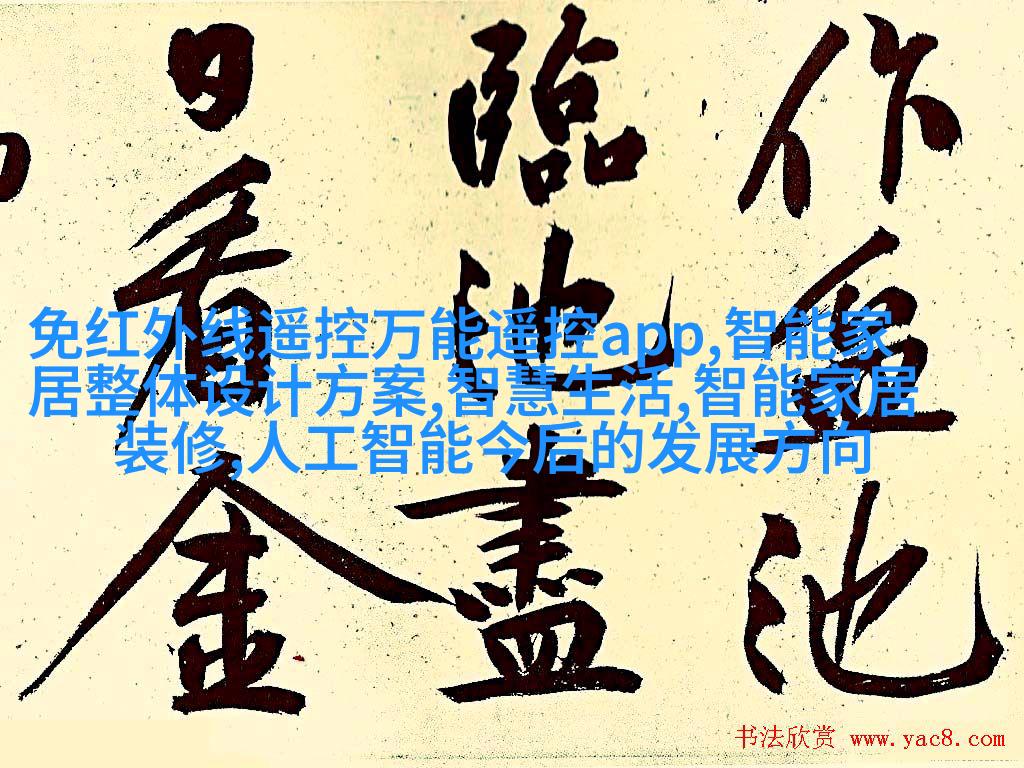 作池
臨池盡
日看金
免红外线遥控万能遥控app,智能家
居整体设计方案,智慧生活,智能家居
装修,人工智能今后的发展方向
书法欣赏 www.yac8.com